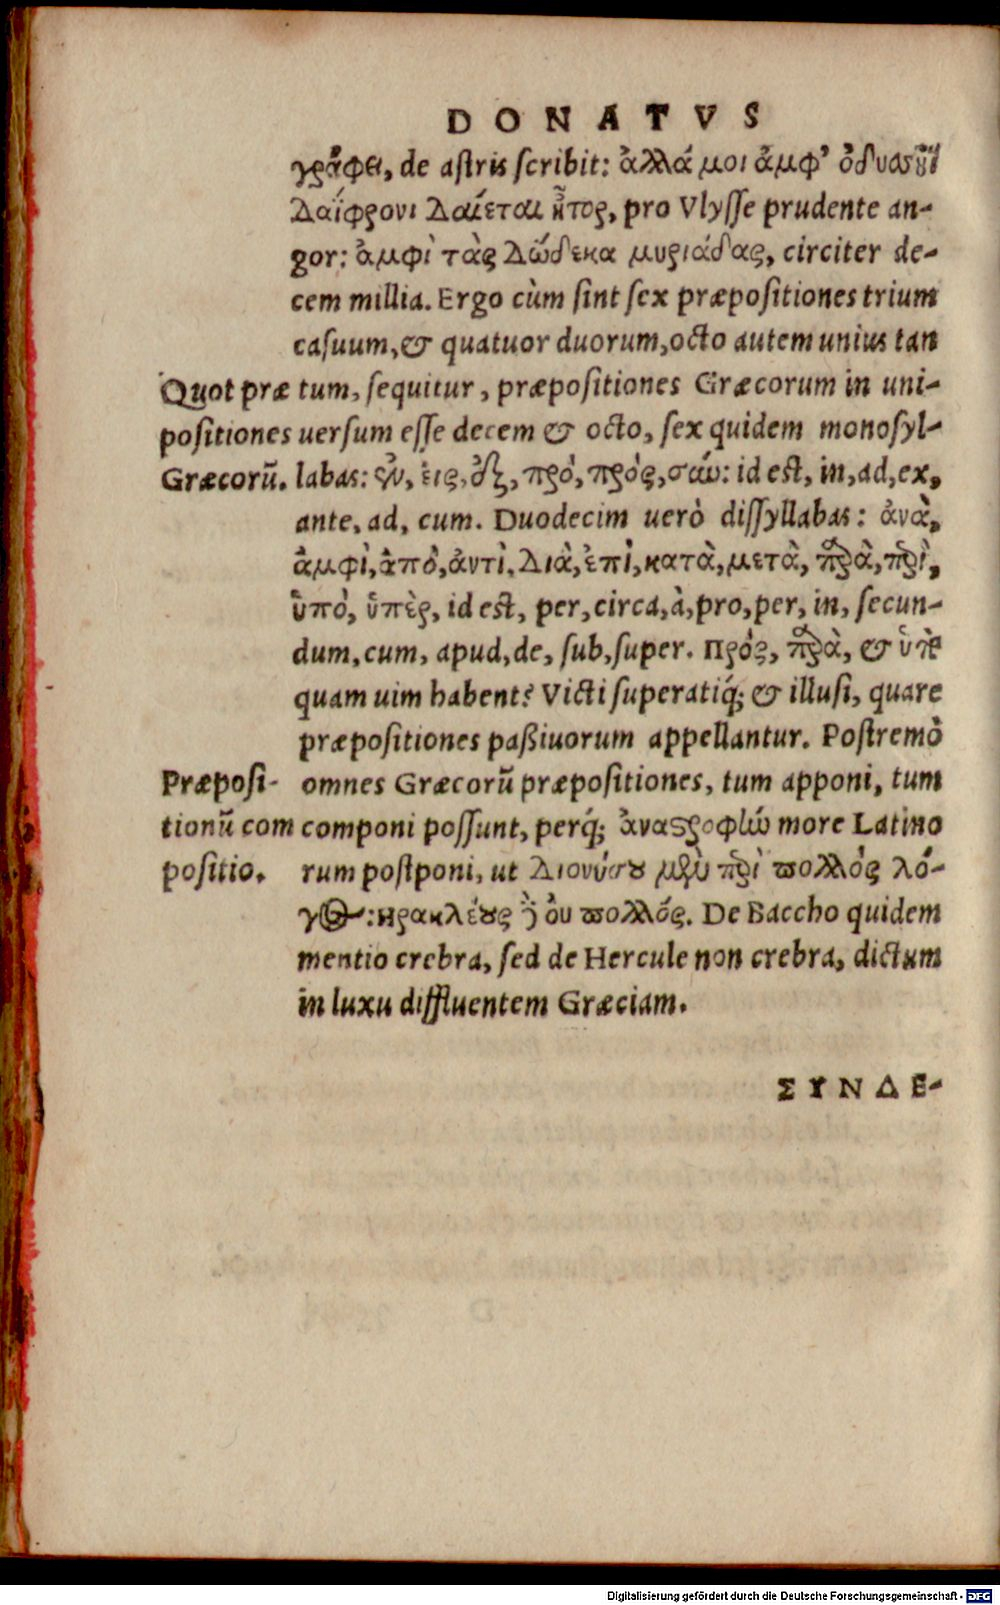 DONATVS
γράφει, de astris scribit: ἀλλά μοι ἀμφ’ ὀδυσῆϊ
δαΐφρονι δαίεται ἦτορ, pro Vlysse prudente an-
gor: ἀμφὶ τὰς δώδεκα μυριάδας, circiter de-
cem millia. Ergo cùm sint sex præpositiones trium
casuum, & quatuor duorum, octo autem unius tan
tum, sequitur, præpositiones Græcorum in uni-
uersum esse decem & octo, sex quidem monosyl-
labas: ἐν, εἰς, ἐξ, πρό, πρός, σύν: id est, in, ad, ex,
ante, ad, cum. Duodecim uerò dissyllabas: ἀνὰ,
ἀμφὶ, ἀπὸ, ἀντὶ, διὰ, ἐπὶ, κατὰ, μετὰ, παρὰ, περὶ,
ὑπὸ, ὑπὲρ, id est, per, circa, à, pro, per, in, secun-
dum, cum, apud, de, sub, super. πρός, παρὰ, & ὑπὲρ
quam uim habent? Victi superatiq́; & illusi, quare
præpositiones paßiuorum appellantur. Postremò
omnes Græcorũ præpositiones, tum apponi, tum
componi possunt, perq́; ἀναστροφὴν more Latino
rum postponi, ut Διονύσου μὲν περὶ πολλὸς λό-
γος: Ηρακλέους δ οὐ πολλός. De Baccho quidem
mentio crebra, sed de Hercule non crebra, dictum
in luxu diffluentem Græciam.
ΣΥΝΔΕ-
Quot præ
positiones
Græcorũ.
Præposi-
tionũ com
positio.
Digitalisierung gefördert durch die Deutsche Forschungsgemeinschaft - DFG